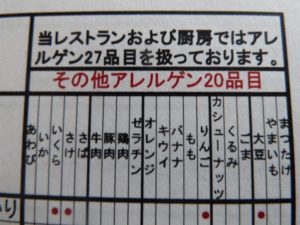 当レストランおよび厨房ではアレ
ルゲン27品目を扱っております。
その他アレルゲン20品目
あわび
いか
いくら
さけ
さば
牛肉
豚肉
鶏肉
ゼラチン
オレンジ
キウイ
バナナ
もも
りんご
カシューナッツ
くるみ
ごま
大豆
やまいも
まつたけ